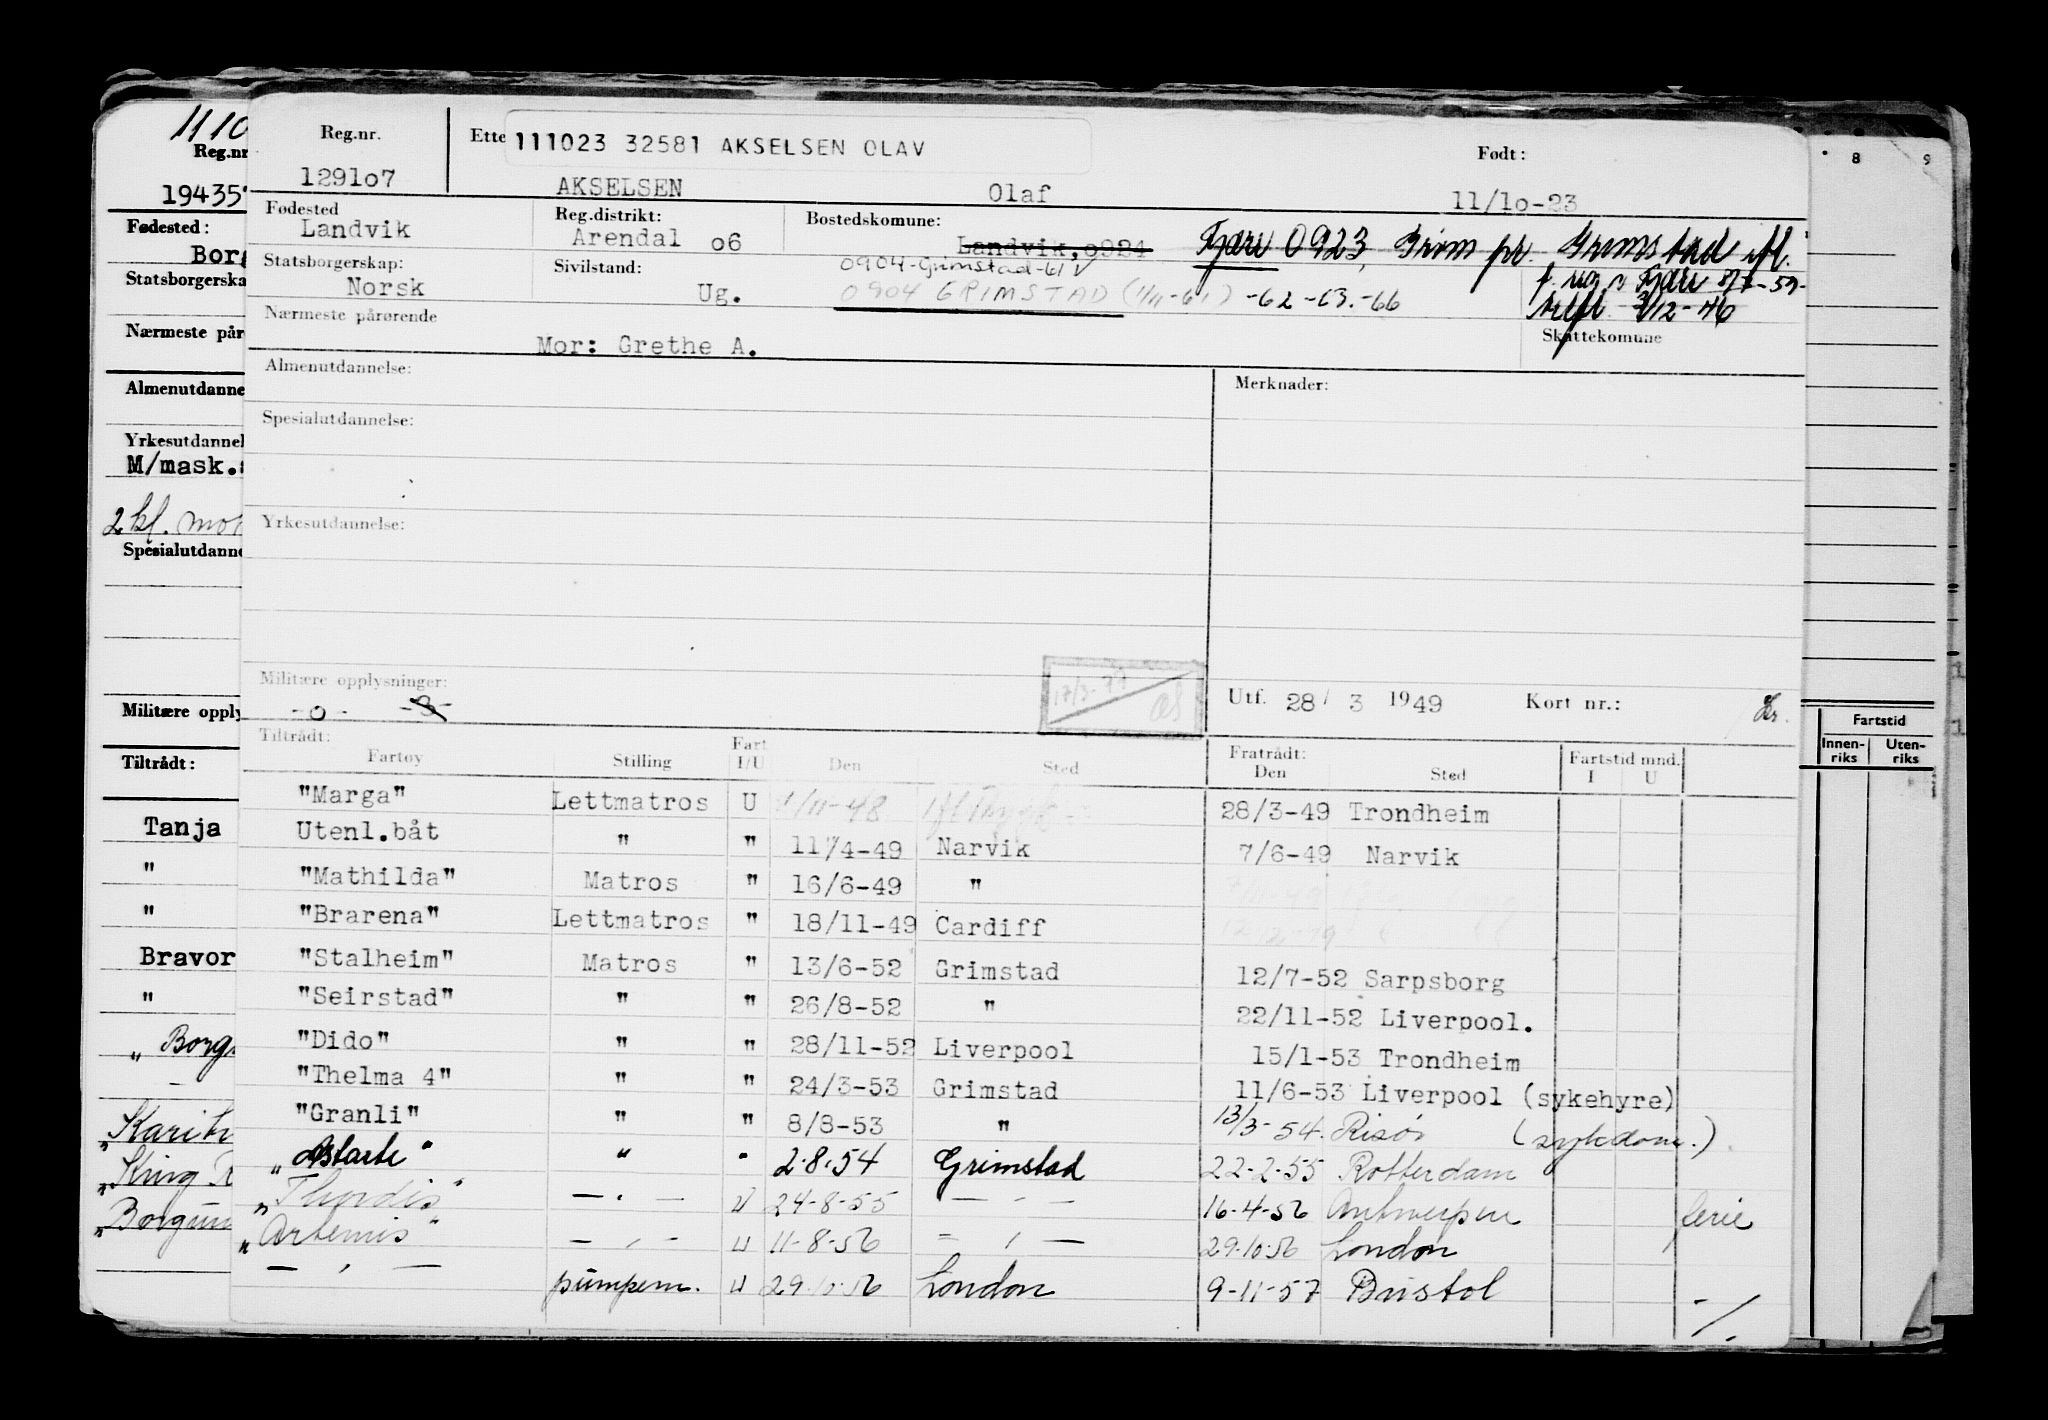 1110
Reg.nr
19435
Fødested:
Borg
Statsborgerska
Nærmeste pår
Almenutdanne
Yrkesutdannel
M/mask.
2 kl. mot
Spesialutdanne
Militære opply
Tiltrådt:
Tanja
"
"
Bravor
"
" Borg
"Karit
"King R
"Borgun
8 9
Fartstid
Innen-riks Uten-riks
Reg.nr. Ette 111023 32581 AKSELSEN OLAV Født:
129107 AKSELSEN Olaf 11/10-23
Fødested Reg.distrikt: Bostedskomune:
Landvik Arendal 06 Landvik, 0924 Fjære 0923, Grim pr. Grimstad
Statsborgerskap: Sivilstand: 0904-Grimstad-61 V
Norsk Ug. 0904 GRIMSTAD (1/11-61) -62-63.-66 Fjære 8/7-59
3/12-46
Nærmeste pårørende Skattekomune
Mor: Grethe A.
Almenutdannelse: Merknader:
Spesialutdannelse:
Yrkesutdannelse:
Militære opplysninger: 17/3-79
-o- -8- Utf. 28/3 1949 Kort nr.:
Tiltrådt: Fratrådt:
Fartøy Stilling Fart I/U Den Sted Den Sted Fartstid mnd. I U
"Marga" Lettmatros U 1/11-48 28/3-49 Trondheim
Utenl.båt " " 11/4-49 Narvik 7/6-49 Narvik
"Mathilda" Matros " 16/6-49 "
"Brarena" Lettmatros " 18/11-49 Cardiff
"Stalheim" Matros " 13/6-52 Grimstad 12/7-52 Sarpsborg
"Seirstad" " " 26/8-52 " 22/11-52 Liverpool.
"Dido" " " 28/11-52 Liverpool 15/1-53 Trondheim
"Thelma 4" " " 24/3-53 Grimstad 11/6-53 Liverpool (sykehyre)
"Granli" " " 8/8-53 " 13/3-54. Risør (sykdom.)
"Astarte" " " 2.8.54 Grimstad 22-2-55 Rotterdam
"Thordis" — " — U 24-8-55 — " — 16-4-56 Antwerpen ferie
"Artemis" — " — U 11-8-56 — " — 29.10.56 London
— " — pumpem. U 29.10.56 London 9-11-57 Bristol -/.